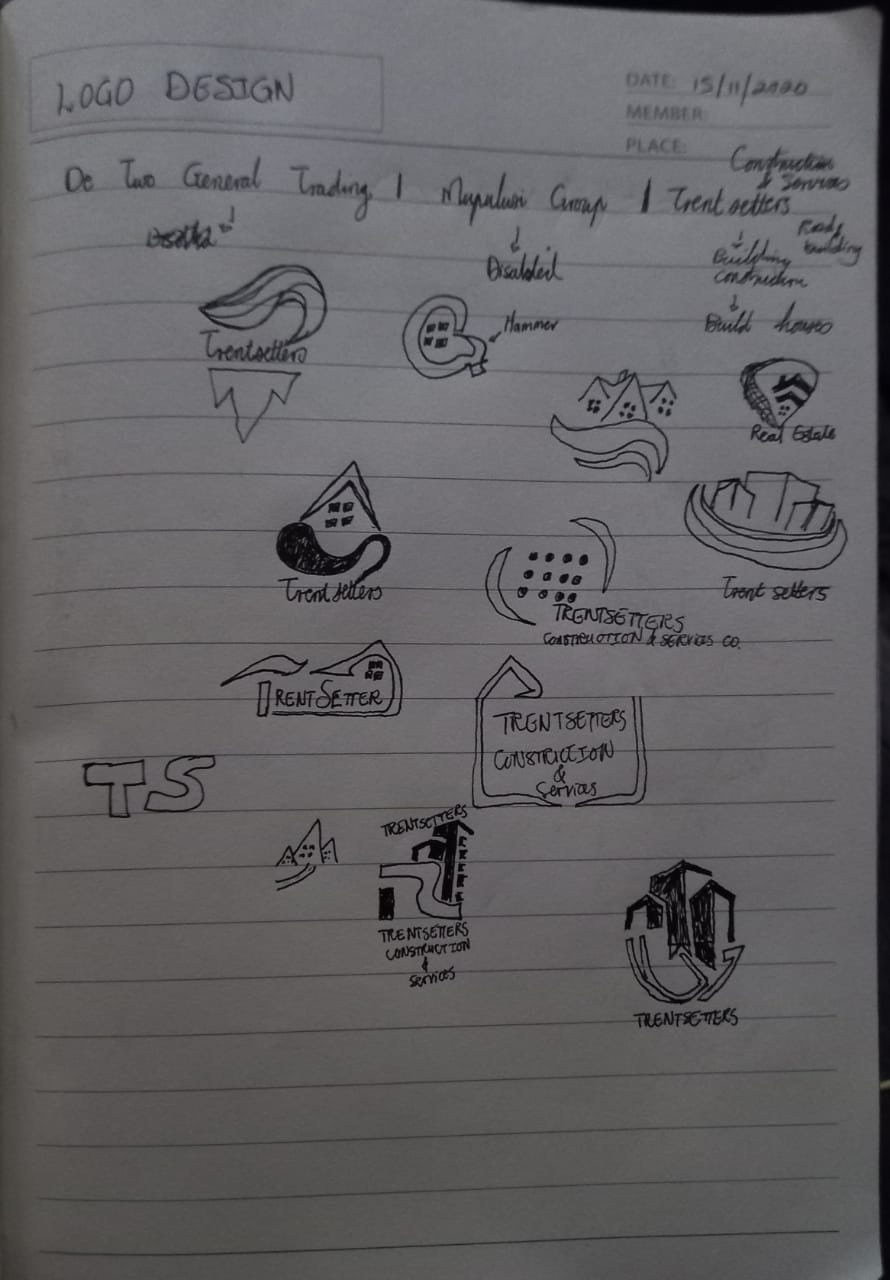 LOGO DESIGN
DATE: 15/11/2020
MEMBER:
PLACE:
De Two General Trading | Mupuluri Group | Trentsetters
Construction
& Services
Disabled
Building
construction
Road
building
Build houses
Trentsetters
Hammer
Real Estate
Trentsetters
Trent setters
TRENTSETTERS
CONSTRUCTION & SERVICES CO.
TRENTSETTER
TRENTSETTERS
CONSTRUCTION
&
Services
TS
TRENTSETTERS
TRENTSETTERS
CONSTRUCTION
&
Services
TRENTSETTERS